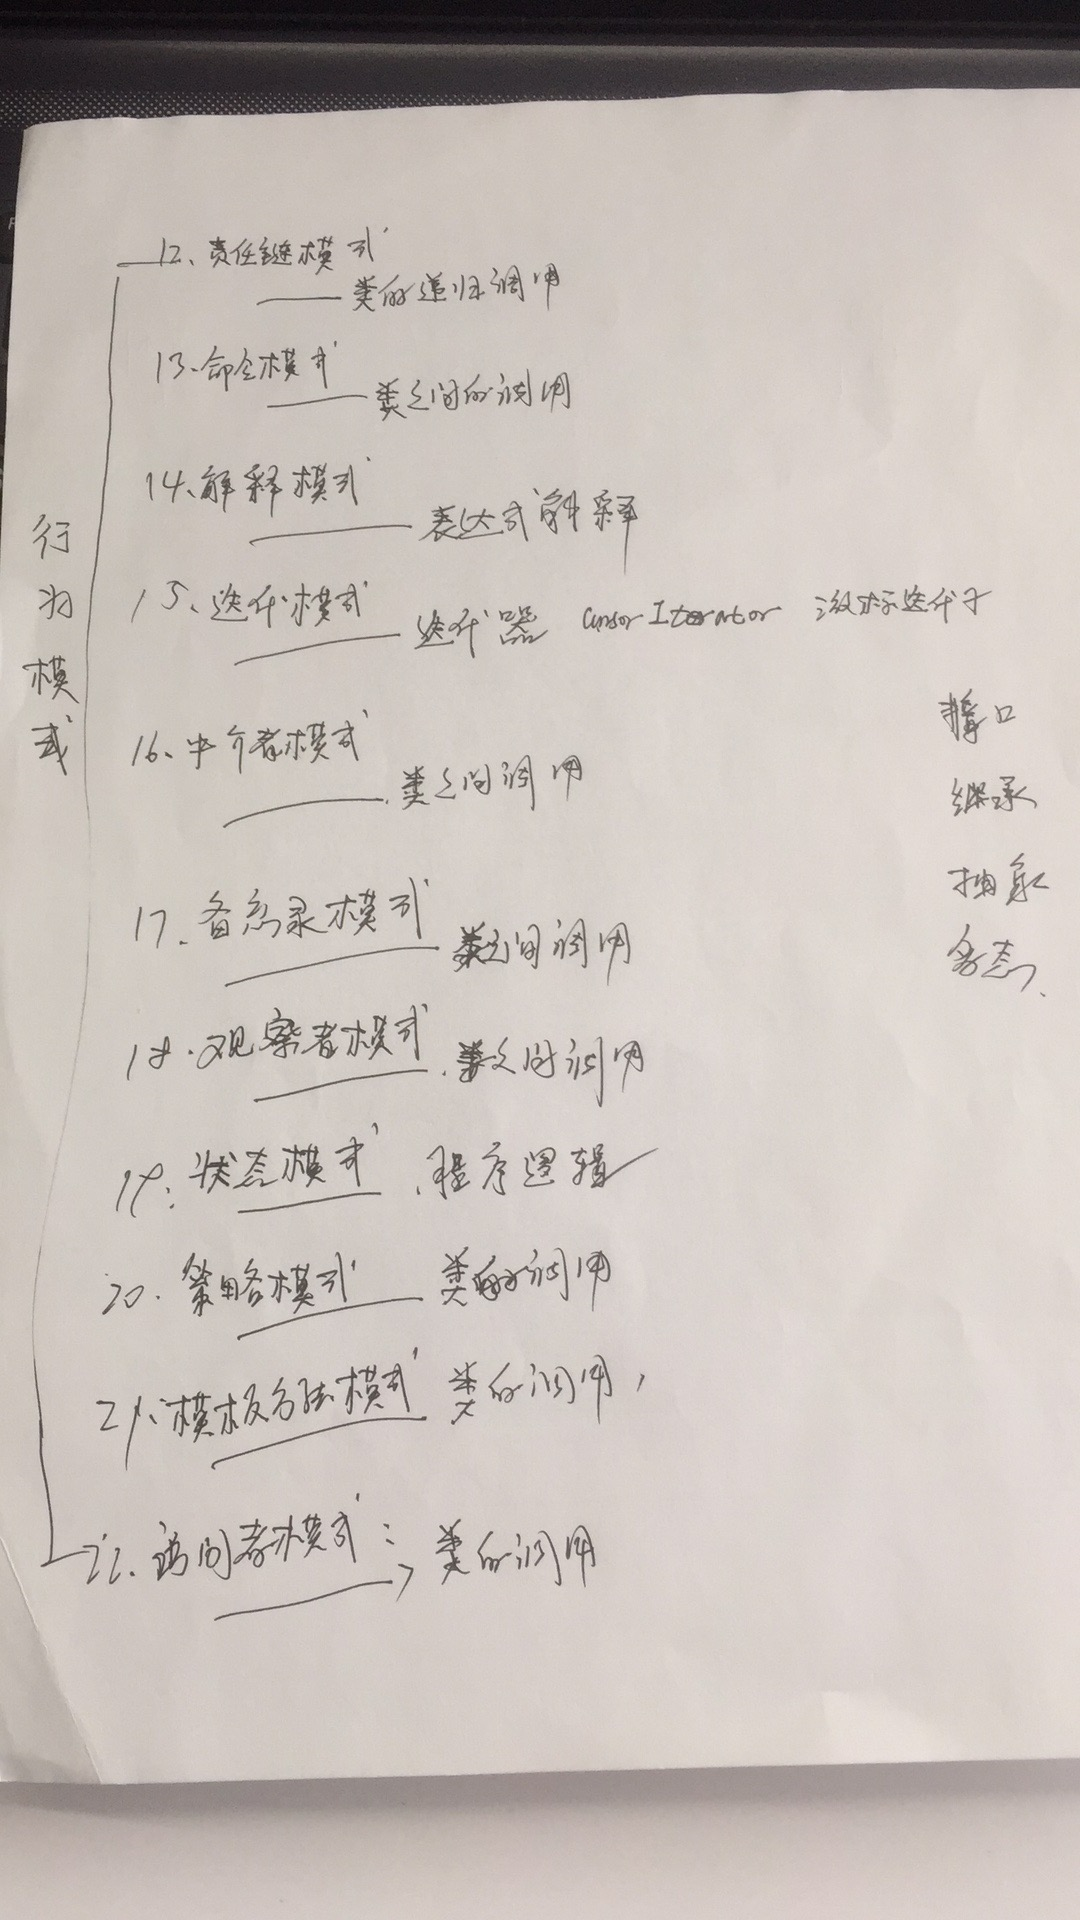 12、责任链模式
类的递归调用
13、命令模式
类之间的调用
14、解释模式
表达式解释
15、迭代模式
迭代器 cursor Iterator 游标迭代子
16、中介者模式
类之间调用
17、备忘录模式
类之间调用
18、观察者模式
类之间调用
19、状态模式 程序逻辑
20、策略模式 类的调用
21、模板方法模式 类的调用,
22、访问者模式: 类的调用
行为模式
接口
继承
抽象
多态、